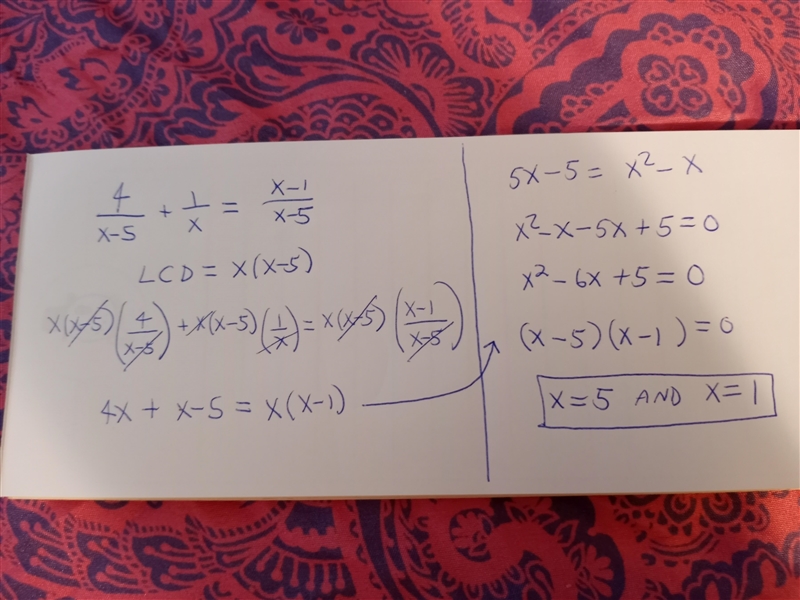 4/(x-5) + 1/x = (x-1)/(x-5)
LCD = x(x-5)
x(x-5)(4/(x-5)) + x(x-5)(1/x) = x(x-5)((x-1)/(x-5))
4x + x-5 = x(x-1)
5x-5 = x²-x
x²-x-5x+5=0
x²-6x+5=0
(x-5)(x-1)=0
x=5 AND x=1